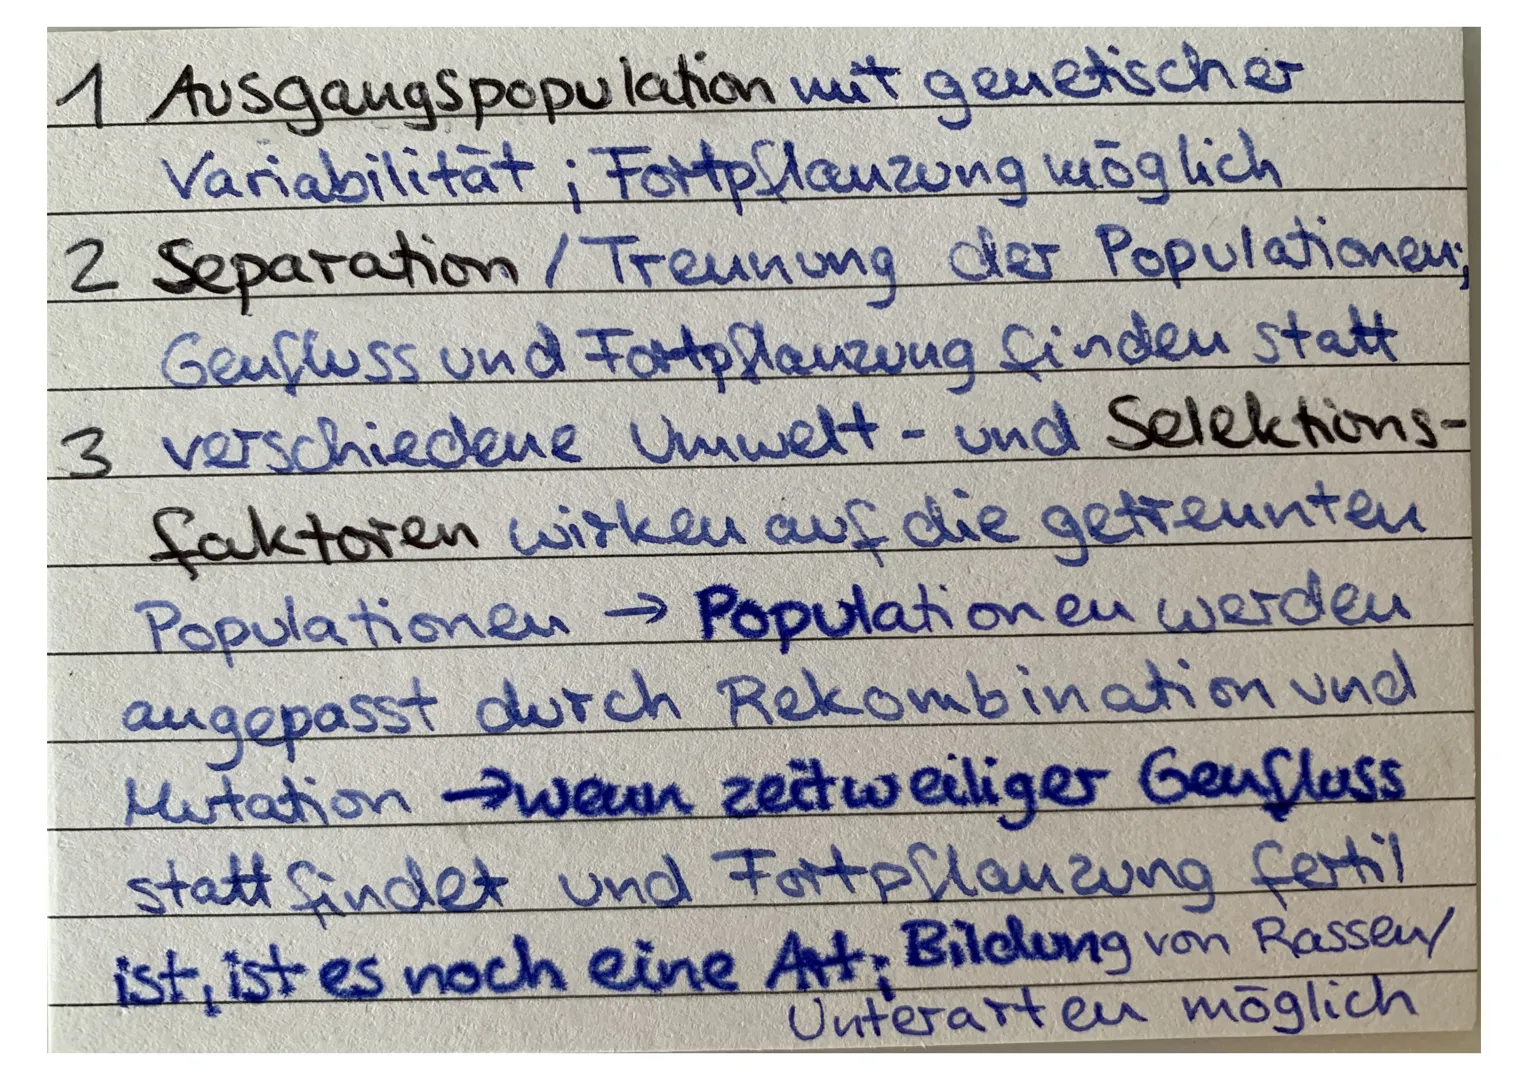 1 Ausgangspopulation mit genetischer
Variabilität ; Fortpflanzung möglich
2 Separation / Trennung der Populationen;
Genfluss und Fortpflanzung finden statt
3 verschiedene Umwelt- und Selektions-
faktoren wirken auf die getrennten
Populationen → Populationen werden
angepasst durch Rekombination und
Mutation → wenn zeitweiliger Genfluss
stattfindet und Fortpflanzung fertil
ist, ist es noch eine Art; Bildung von Rassen/
Unterarten möglich